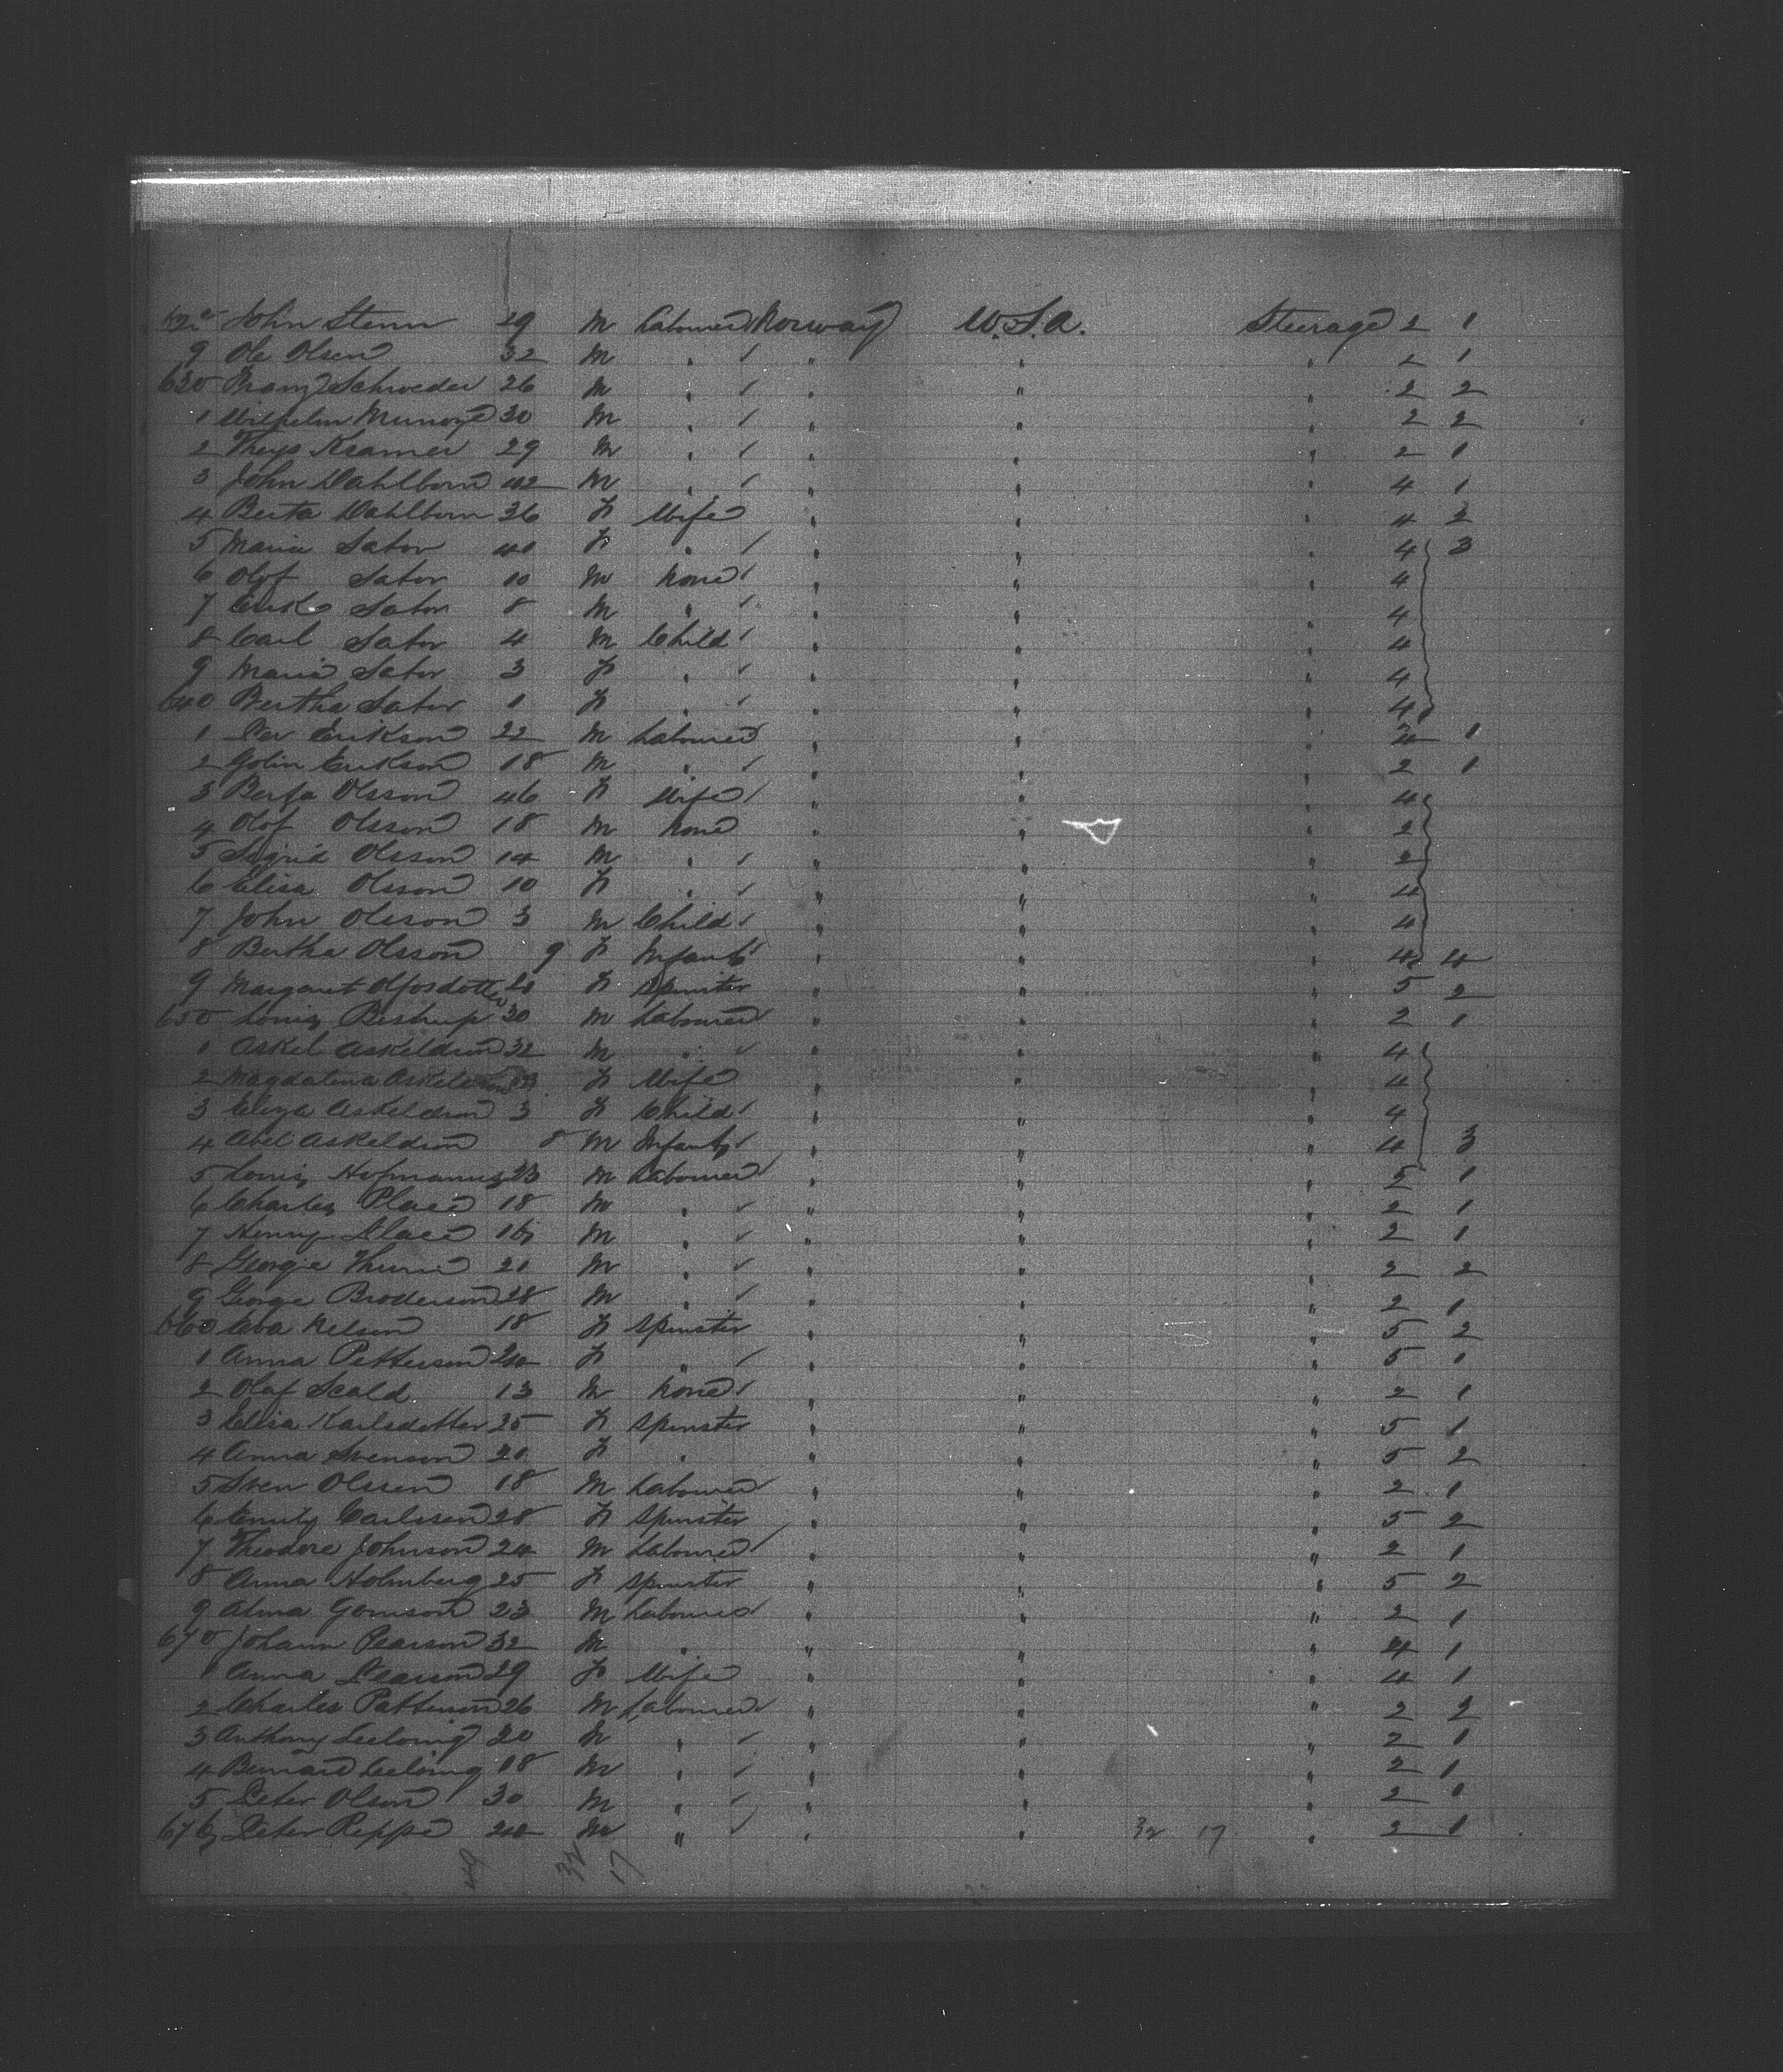 John Stenn 29 M Labourer Norway U.S.A. Steerage 2 1
9 Ole Olsen 32 M " " " " 2 1
630 Franz Schroeder 26 M " " " " 2 2
1 Wilhelm 30 M " " " " 2 2
2 Theys Kramer 29 M " " " " 2 1
3 John Dahlbom 42 M " " " " 4 1
4 Berta Dahlbom 36 F Wife " " " 4 2
5 Maria Sator 40 F " " " " 4 3
6 Olof Sator 10 M None " " " 4
7 Erik Sator 8 M " " " " 4
8 Carl Sator 4 M Child " " " 4
9 Maria Sator 3 F " " " " 4
640 Bertha Sator 1 F " " " " 4
1 Per Erikson 22 M Labourer " " " 2 1
2 Golin Erikson 18 M " " " " 2 1
3 Olsson 46 F Wife " " " 4
4 Olof Olsson 18 M None " " " 2
5 Sigrid Olsson 14 M " " " " 2
6 Elisa Olsson 10 F " " " " 4
7 John Olsson 3 M Child " " " 4
8 Bertha Olsson 9 F Infant " " " 4 4
9 Margaret Olfosdotter 20 F Spinster " " " 5 2
650 Louis Bistrup 30 M Labourer " " " 2 1
1 Askel Askeldson 32 M " " " " 4
2 Magdalena F Wife " " " 4
3 Eliza Askeldson 3 F Child " " " 4
4 Abel Askeldson 8 M Infant " " " 4 3
5 Louis 23 M Labourer " " " 1
6 Charles Place 18 M " " " " 2 1
7 Henry Place 16 M " " " " 2 1
8 George 21 M " " " " 2 2
9 George Broderson 28 M " " " " 2 1
660 Nelson 18 F Spinster " " " 5 2
1 Anna Petterson 24 F " " " " 5 1
2 Olaf Scald 13 M None " " " 2 1
3 Elisa Karlsdotter 25 F Spinster " " " 5 1
4 Anna Svenson 20 F " " " " 5 2
5 Sven Olssen 18 M Labourer " " " 2 1
6 Emily Carlssen 28 F Spinster " " " 5 2
7 Theodore Johnson 24 M Labourer " " " 2 1
8 Anna Holmberg 25 F Spinster " " " 5 2
9 Alma Gomson 23 M Labourer " " " 2 1
670 Johann Pearson 32 M " " " " 4 1
1 Anna Pearson 29 F Wife " " " 4 1
2 Charles Patterson 26 M Labourer " " " 2 2
3 Anthony 20 M " " " " 2 1
4 Bernard 18 M " " " " 2 1
5 Peter Olson 30 M " " " " 2 1
676 Peter Reppe M " " " 32 17 " 2 1